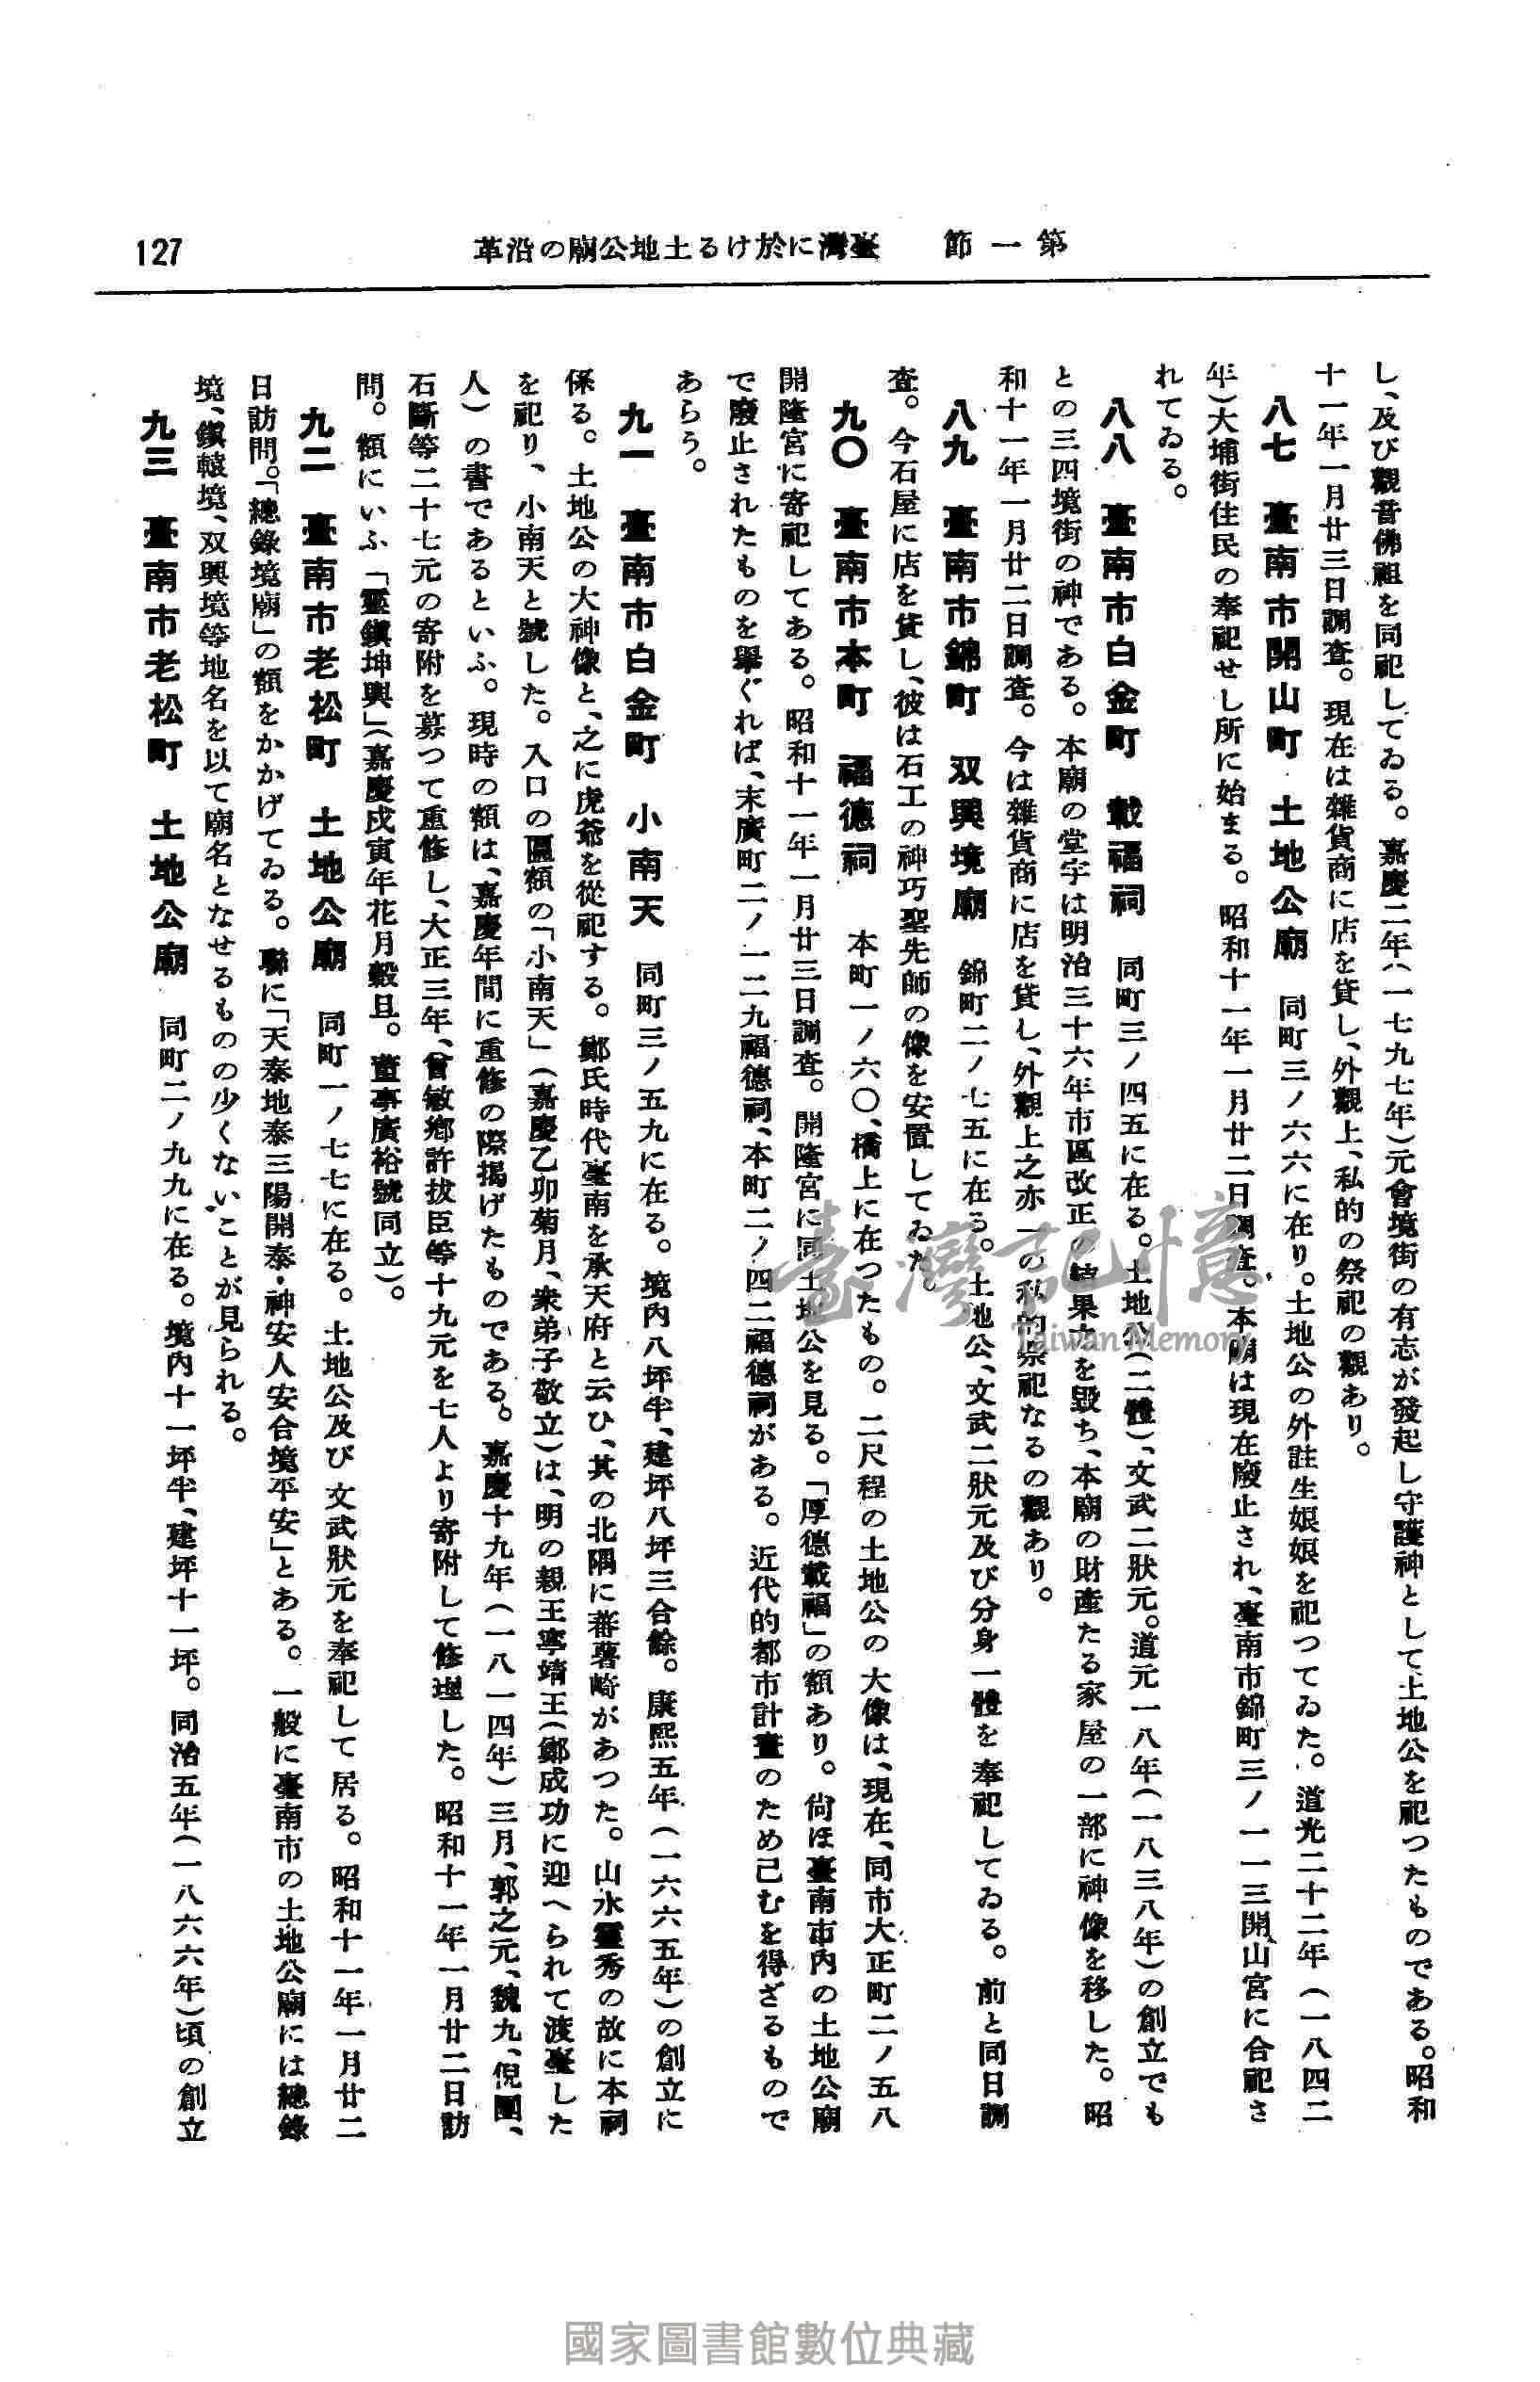 127
革沿の廟公地土るけ於に灣臺　節一第
し、及び觀音佛祖を同祀してゐる。嘉慶二年(一七九七年)元會境街の有志が發起し守護神として土地公を祀つたものである。昭和
十一年一月廿三日調査。現在は雜貨商に店を貸し、外觀上、私的の祭祀の觀あり。
八七　臺南市開山町　土地公廟　同町三ノ六六に在り。土地公の外註生娘娘を祀つてゐた。道光二十二年(一八四二
年)大埔街住民の奉祀せし所に始まる。昭和十一年一月廿二日調査。本廟は現在廢止され、臺南市錦町三ノ一一三開山宮に合祀さ
れてゐる。
八八　臺南市白金町　載福祠　同町三ノ四五に在る。土地公(二體)、文武二狀元。道元一八年(一八三八年)の創立でも
との三四境街の神である。本廟の堂宇は明治三十六年市區改正の結果之を毀ち、本廟の財產たる家屋の一部に神像を移した。昭
和十一年一月廿二日調査。今は雜貨商に店を貸し、外觀上之亦一の私的祭祀なるの觀あり。
八九　臺南市錦町　双興境廟　錦町二ノ七五に在る。土地公、文武二狀元及び分身一體を奉祀してゐる。前と同日調
査。今石屋に店を貸し、彼は石工の神巧聖先師の像を安置してゐた。
九〇　臺南市本町　福德祠　本町一ノ六〇、橋上に在つたもの。二尺程の土地公の大像は、現在、同市大正町二ノ五八
開隆宮に寄祀してある。昭和十一年一月廿三日調査。開隆宮に同土地公を見る。「厚德載福」の額あり。尙ほ臺南市內の土地公廟
で廢止されたものを擧ぐれば、末廣町二ノ一二九福德祠、本町二ノ四二福德祠がある。近代的都市計畫のため已むを得ざるもので
あらう。
九一　臺南市白金町　小南天　同町三ノ五九に在る。境內八坪半、建坪八坪三合餘。康熙五年(一六六五年)の創立に
係る。土地公の大神像と、之に虎爺を從祀する。鄭氏時代臺南を承天府と云ひ、其の北隅に蕃薯崎があつた。山水靈秀の故に本祠
を祀り、小南天と號した。入口の匾額の「小南天」(嘉慶乙卯菊月、衆弟子敬立)は、明の親王寧靖王(鄭成功に迎へられて渡臺した
人)の書であるといふ。現時の額は、嘉慶年間に重修の際揭げたものである。嘉慶十九年(一八一四年)三月、郭之元、魏九、倪團、
石斷等二十七元の寄附を募つて重修し、大正三年、曾敏鄉許拔臣等十九元を七人より寄附して修理した。昭和十一年一月廿二日訪
問。額にいふ「靈鎭坤輿」(嘉慶戊寅年花月穀旦。董事廣裕號同立)。
九二　臺南市老松町　土地公廟　同町一ノ七七に在る。土地公及び文武狀元を奉祀して居る。昭和十一年一月廿二
日訪問。「總錄境廟」の額をかかげてゐる。聯に「天泰地泰三陽開泰・神安人安合境平安」とある。一般に臺南市の土地公廟には總錄
境、鎭轅境、双興境等地名を以て廟名となせるものの少くないことが見られる。
九三　臺南市老松町　土地公廟　同町二ノ九九に在る。境內十一坪半、建坪十一坪。同治五年(一八六六年)頃の創立
臺灣記憶
Taiwan Memory
國家圖書館數位典藏